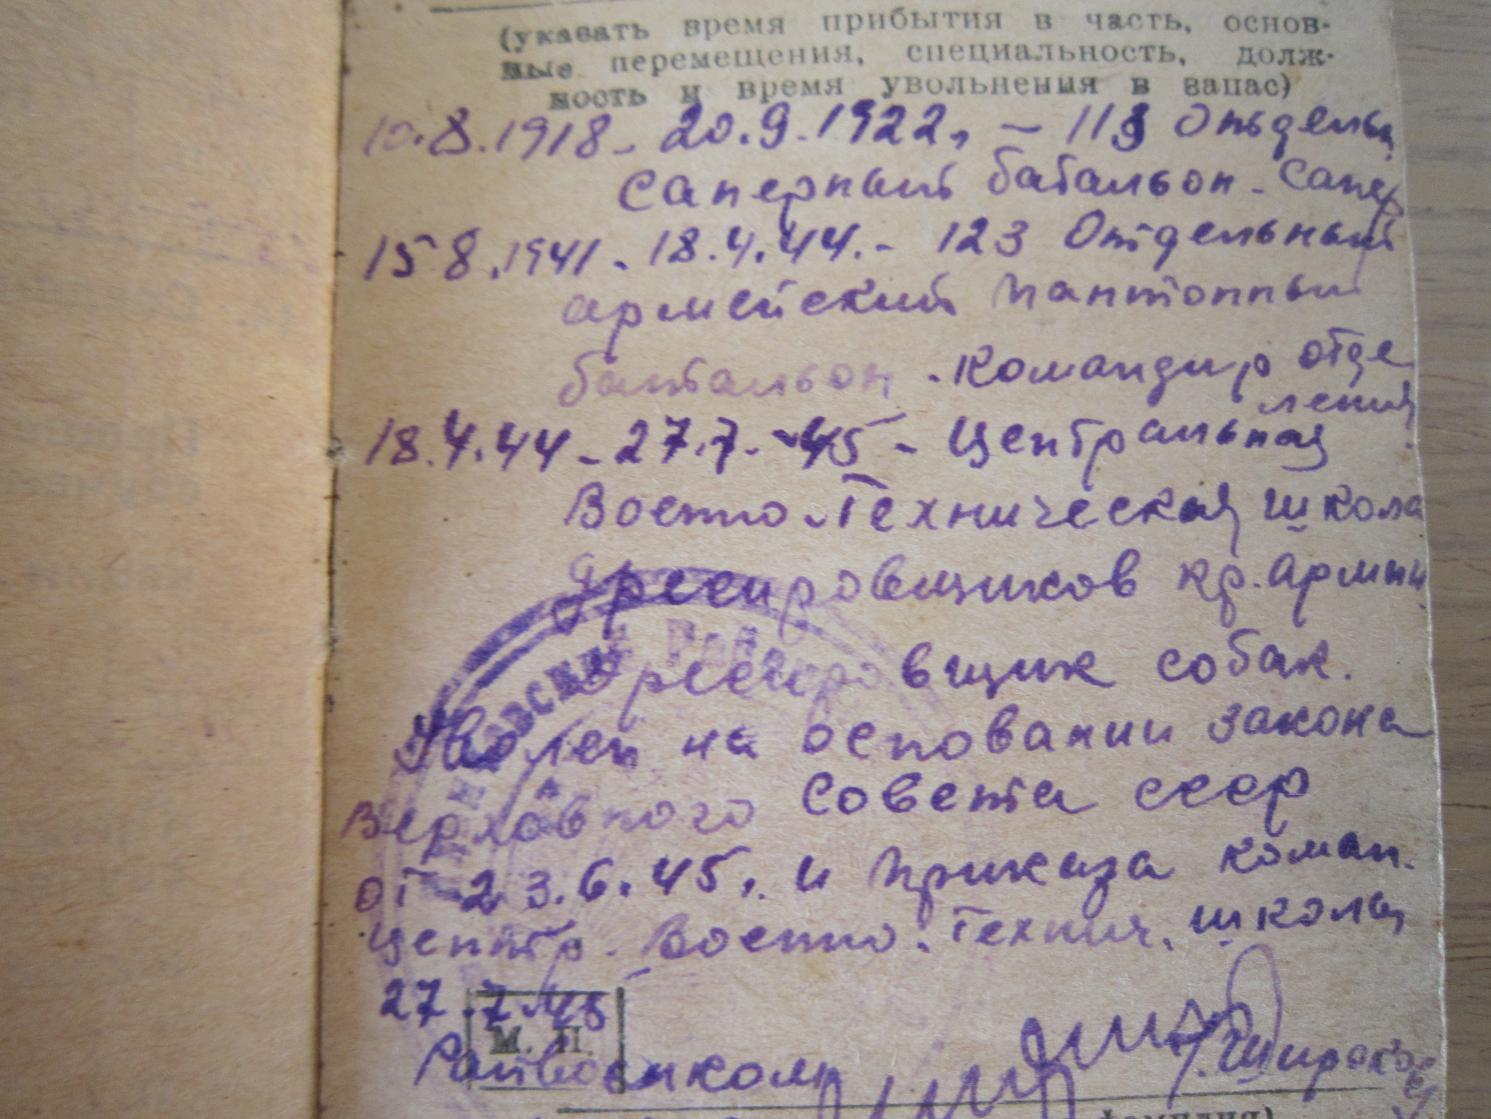 (указать время прибытия в часть, основ-
ные перемещения, специальность, долж-
ность и время увольнения в запас)
10.8.1918 - 20.9.1922, - 113 Отдельн.
Саперный батальон - Сапер
15 8.1941 - 18.4.44. - 123 Отдельный
армейский понтонный
батальон - Командир отде
ления
18.4.44 - 27.7.45 - Центральная
Военно-Техническая школа
дрессировщиков кр. армии
дрессировщик собак.
Уволен на основании закона
Верховного Совета СССР
от 23.6.45. и приказа коман.
центр. Военно. Технич. школы
27.7.45
М. П.
Райвоенком Широков
фамилия)